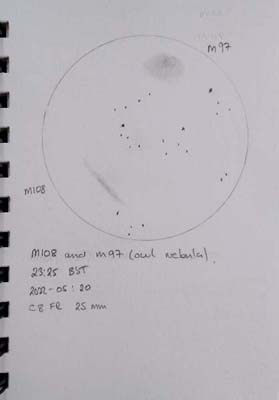 M97
M108
M108 and M97 (owl nebula)
23:25 BST
2022-05:20
C8 FR 25 mm